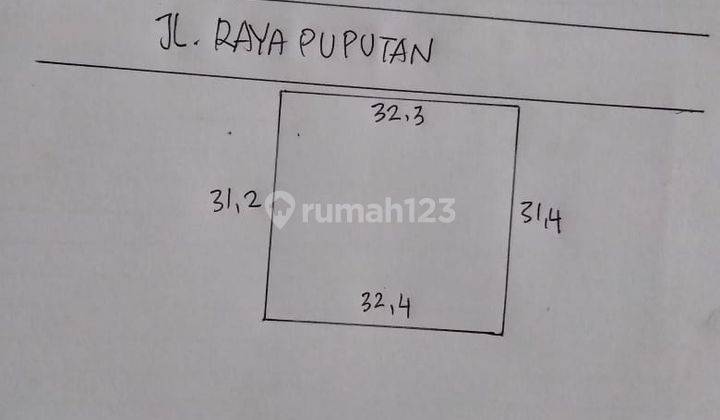 JL. RAYA PUPUTAN
32,3
31,2
rumah123
31,4
32,4